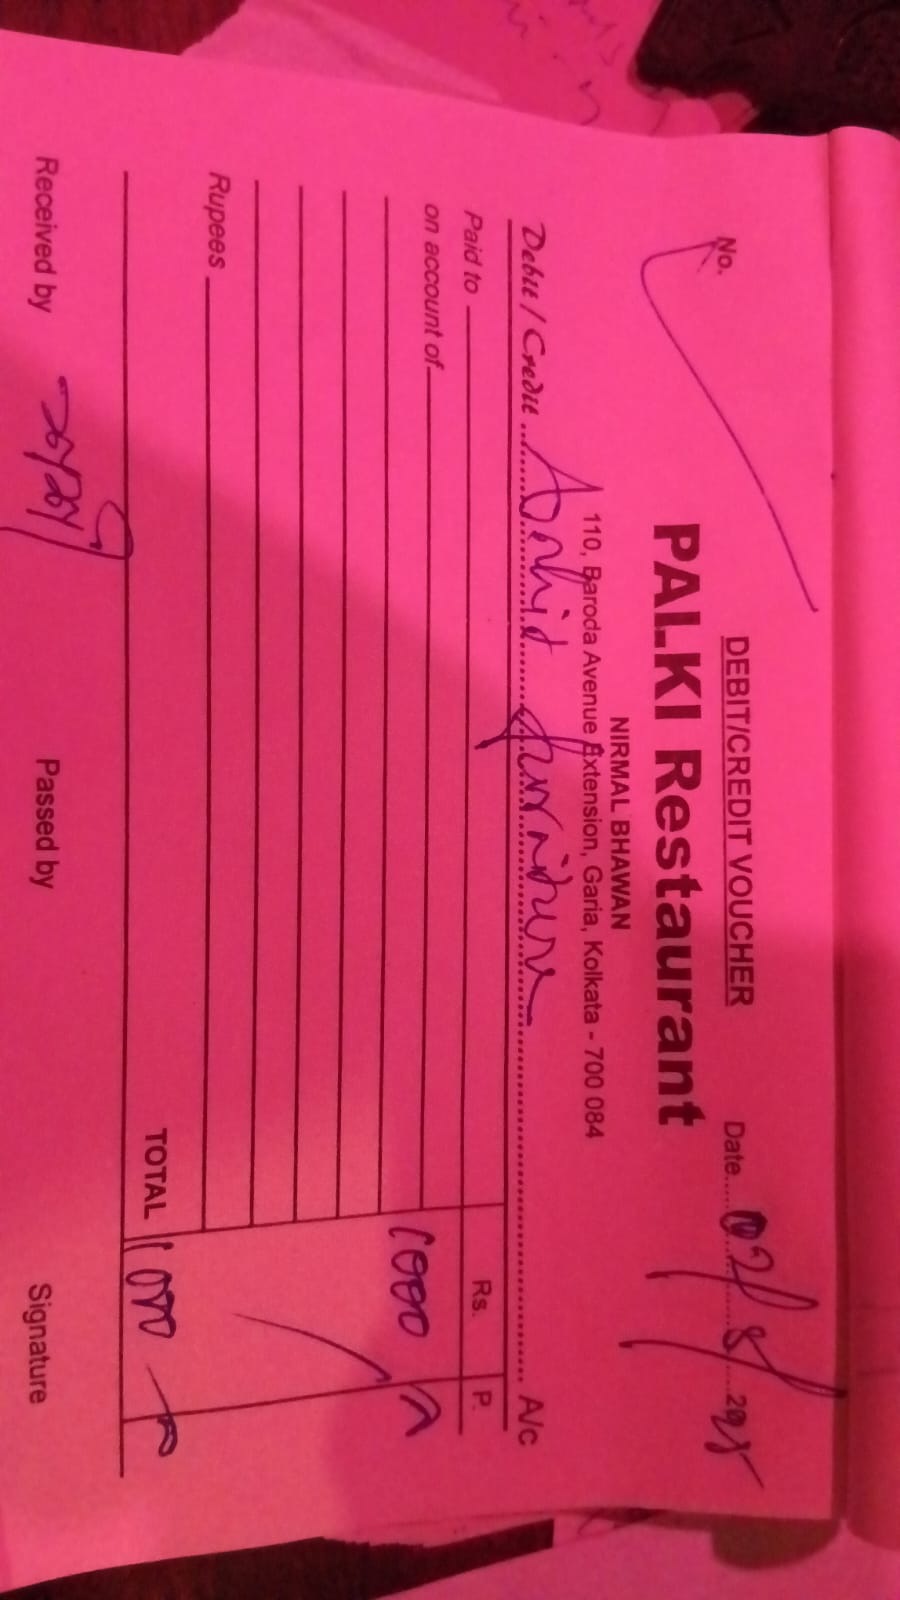 DEBIT/CREDIT VOUCHER
No.
Date 02/5/2025
PALKI Restaurant
NIRMAL BHAWAN
110, Baroda Avenue Extension, Garia, Kolkata - 700 084
Debit / Credit furniture A/c
Paid to
Rs. P.
on account of
1000
Rupees
TOTAL 1000
Received by
Passed by
Signature